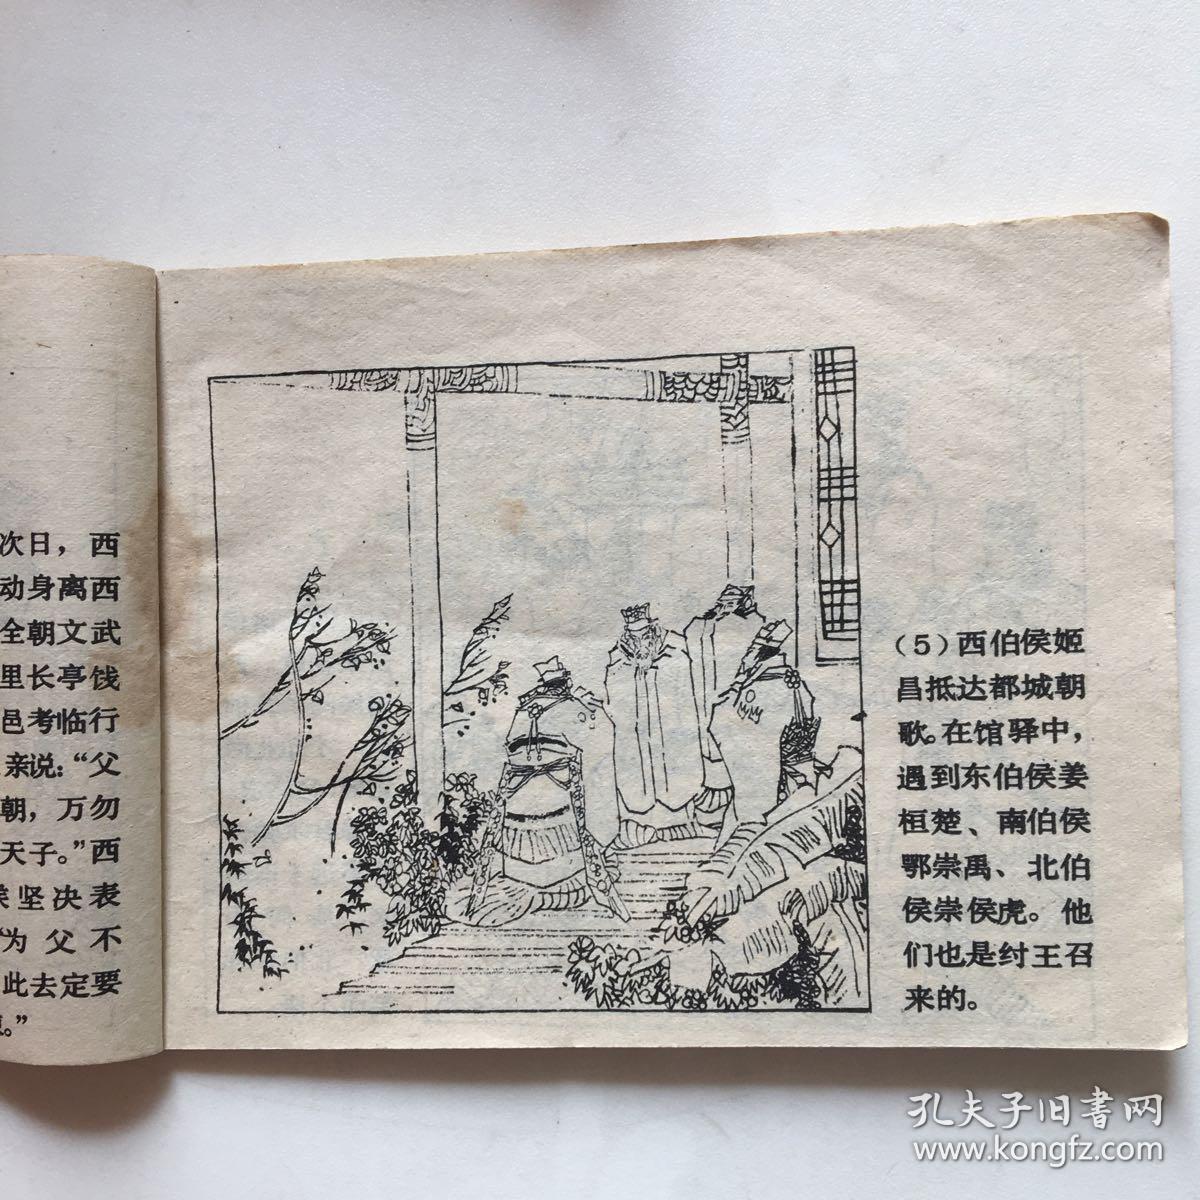 次日，西
动身离西
全朝文武
里长亭饯
邑考临行
亲说：“父
朝，万勿
天子。”西
坚决表
为父不
此去定要
。”
（5）西伯侯姬
昌抵达都城朝
歌。在馆驿中，
遇到东伯侯姜
桓楚、南伯侯
鄂崇禹、北伯
侯崇侯虎。他
们也是纣王召
来的。
孔夫子旧书网
www.kongfz.com